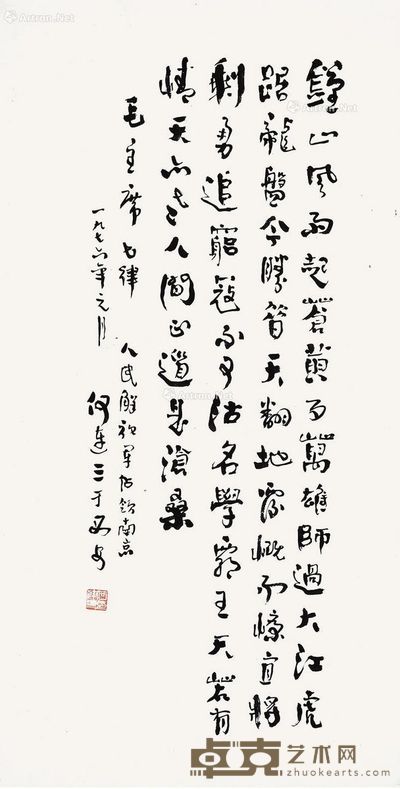 鍾山風雨起蒼黃百萬雄師過大江虎
踞龍盤今勝昔天翻地覆慨而慷宜將
剩勇追窮寇不可沽名學霸王天若有
情天亦老人間正道是滄桑
毛主席七律 人民解放軍佔領南京
一九七六年元月 何三于西安
Artron.Net
卓克艺术网
zhuokearts.com